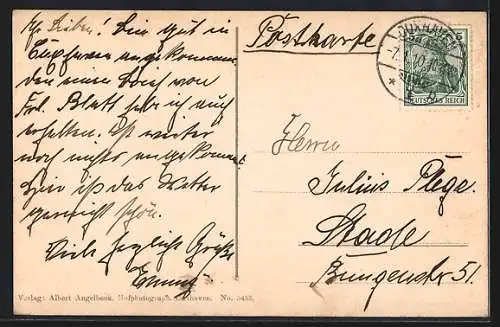 Ihr Lieben! Bin gut in
Cuxhaven angekommen
den Brief von
Frl. Blatt habe ich auch
erhalten. Ist weiter
noch nichts angekommen?
Hier ist das Wetter
schön.
Viele herzliche Grüße
Verlag: Albert Angelbeck, Hofphotograph, Cuxhaven. No. 3435.
Postkarte
CUXHAVEN
DEUTSCHES REICH
Herrn
Julius Plege.
Stade
Bungenstr 51.